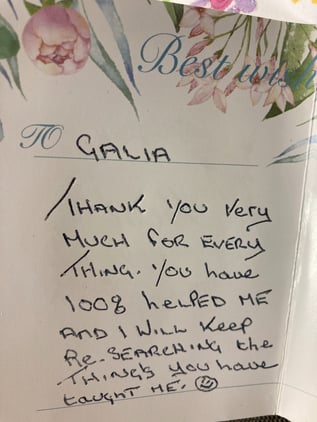 Best wish
TO GALIA
THANK YOU Very
MUCH FOR EVERY
THING. YOU have
100% helped ME
AND I WILL Keep
Re-SEARCHING the
THINGS YOU have
taught ME. ☺